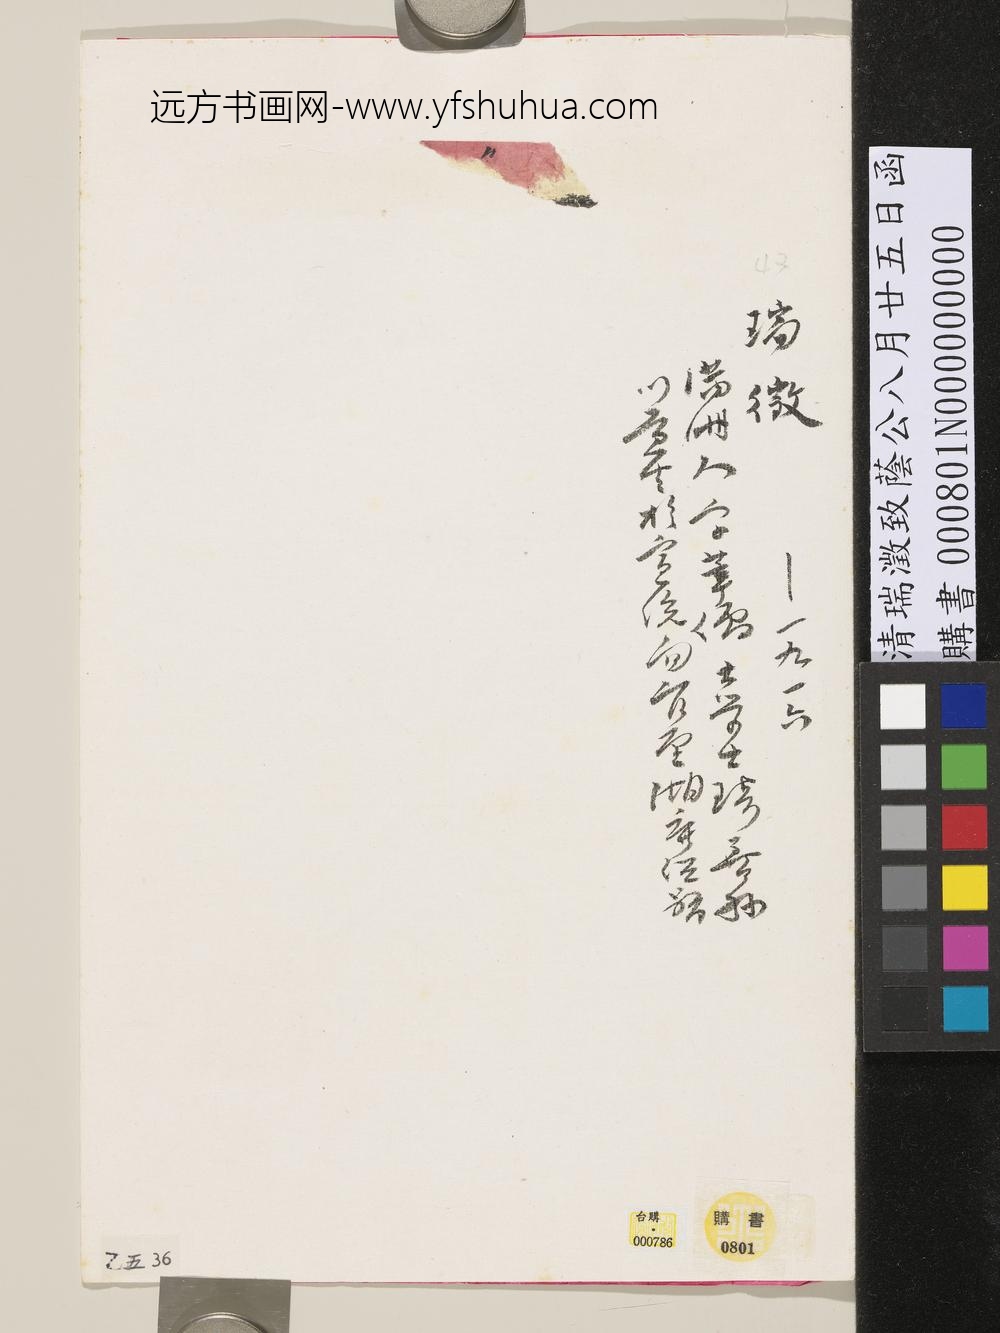 远方书画网-www.yfshuhua.com
43
瑞徵
—一九一六
满洲人字莘儒大学士琦善孙
以荫生
官至湖广总督
清瑞澂致蔭公八月廿五日函
購書 000801N000000000
台購
000786
購 書
0801
乙五 36